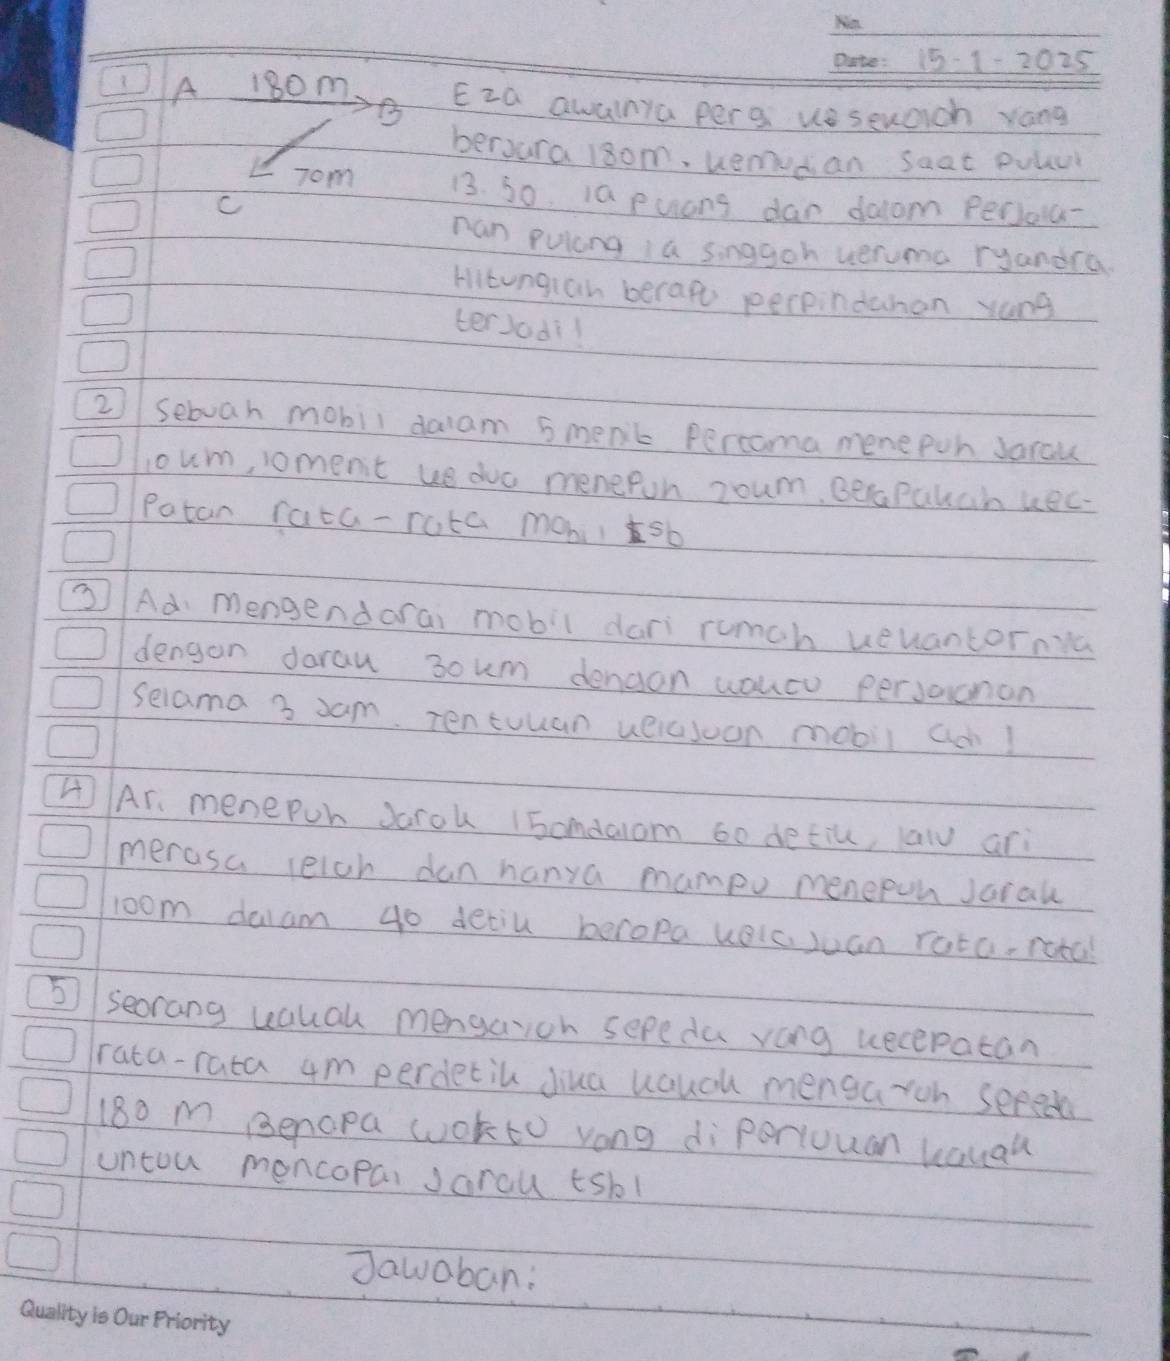 No.
Date: 15-1-2025
1 A 180m B Eza awalnya pergi ke sekolah yang
berjara 180m. kemudian saat pukul
70m 13.50. ia pulang dan dalam perjala-
C
nan pulang ia singgah keruma ryandra.
Hitunglah berapa perpindahan yang
terjadi!
2 sebuah mobil dalam 5 menit pertama menepuh jarak
10km, 10menit ke dua menepuh 20km. Berapakah kec-
patan rata-rata mobil tsb
3 Adi mengendarai mobil dari rumah kekantornya
dengan jarak 30km dengan waktu perjalanan
selama 3 jam. Tentukan kelajuan mobil adi!
4 Ari menepuh jarak 150m dalam 60 detik, lalu ari
merasa lelah dan hanya mampu menepuh jarak
100m dalam 40 detik berapa kelajuan rata-rata!
5 seorang kakak mengayuh sepeda yang kecepatan
rata-rata 4m perdetik jika kakak mengayuh sepeda
180 m Berapa waktu yang diperlukan kakak
untuk mencapai jarak tsb!
Jawaban:
Quality is Our Priority